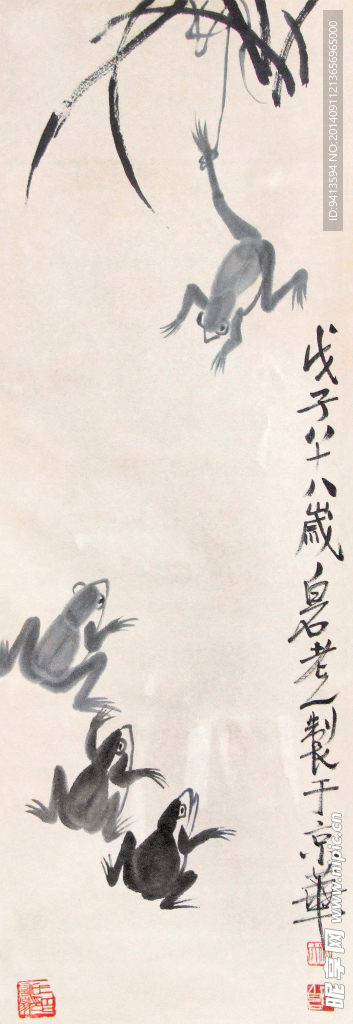 戊子八十八歲白石老人製于京華
ID:9413594 NO:20140911213656965000
昵享网 www.nipic.cn